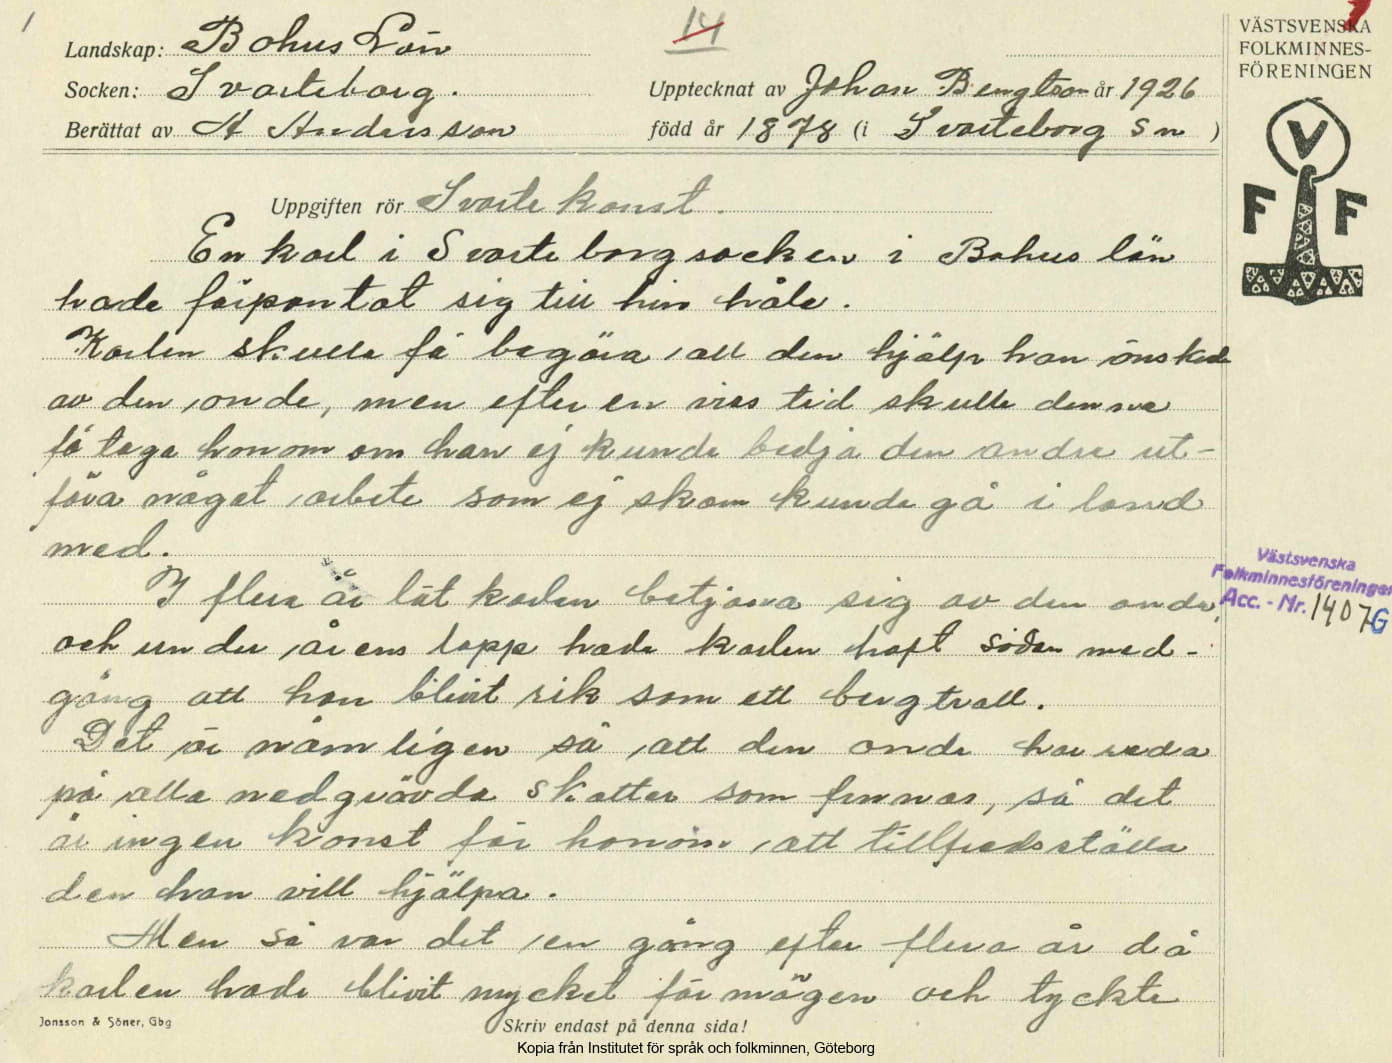 1
14
Landskap: Bohus Län
Socken: Svarteborg.
Upptecknat av Johan Bengtson år 1926
Berättat av A Andersson
född år 1878 (i Svarteborg sn )
VÄSTSVENSKA
FOLKMINNES-
FÖRENINGEN
V
F F
Uppgiften rör Svartekonst.
En karl i Svarteborgsocken i Bohus län
hade förpantat sig till hin håle.
Karlen skulle få begära all den hjälp han önskade
av den onde, men efter en viss tid skulle denna
få taga honom om han ej kunde bedja den andre ut-
föra något arbete som ej skam kunde gå i land
med.
I flera år lät karlen betjäna sig av den onde,
och under årens lopp hade karlen haft sådan med-
gång att han blivit rik som ett bergtroll.
Det är nämligen så att den onde har reda
på alla nedgrävda skatter som finnas, så det
är ingen konst för honom att tillfredsställa
den han vill hjälpa.
Men så var det en gång efter flera år då
karlen hade blivit mycket förmögen och tyckte
Västsvenska
Folkminnesföreningen
Acc. - Nr. 1407G
Jonsson & Söner, Gbg
Skriv endast på denna sida!
Kopia från Institutet för språk och folkminnen, Göteborg